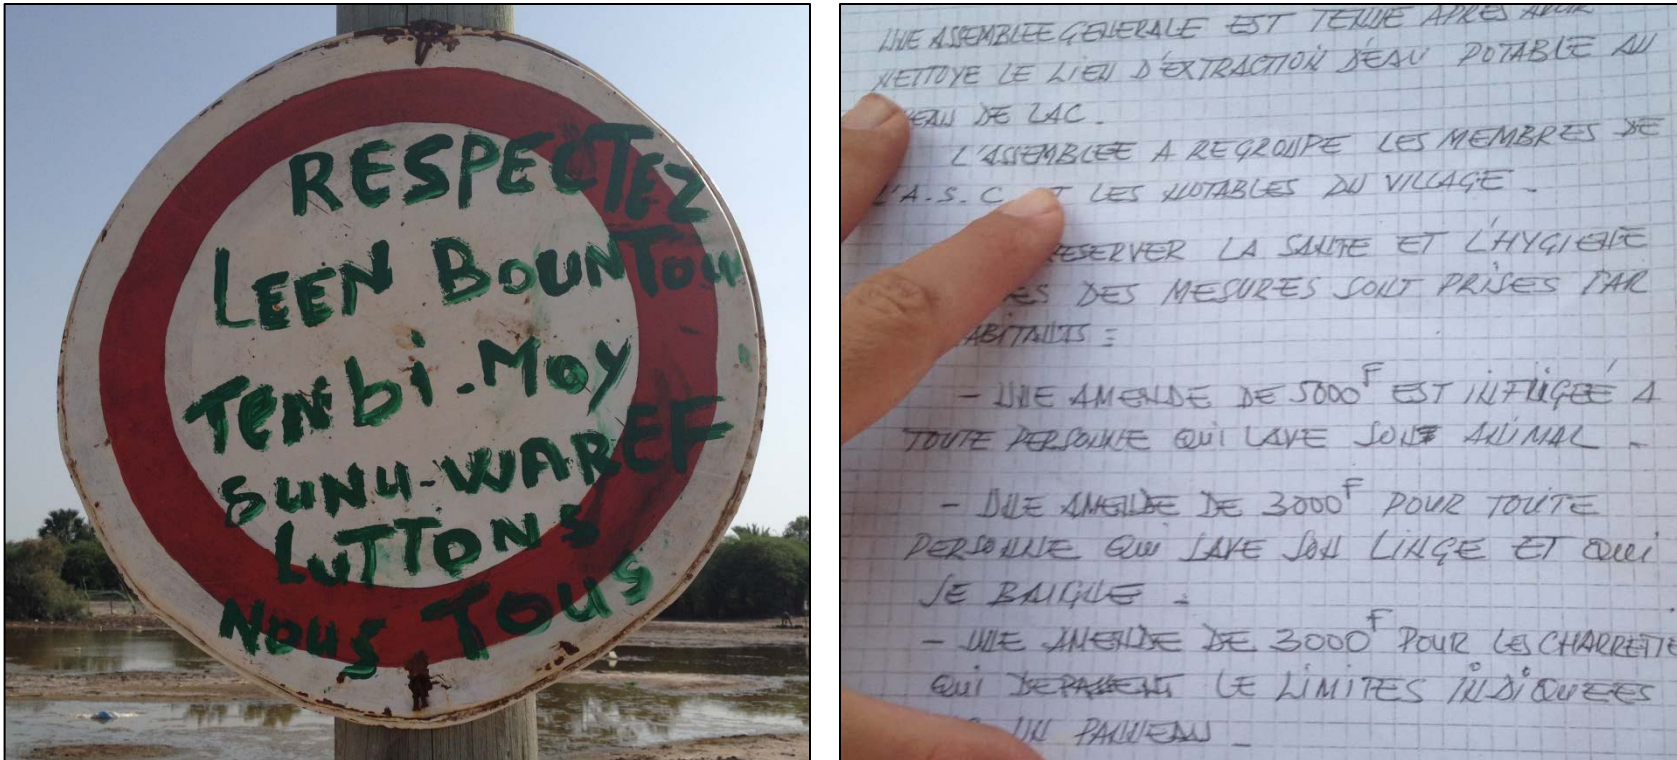 RESPECTEZ
LEEN BOUNTOU
TENbi-MOY
SUNU-WAREF
LUTTONS
NOUS TOUS
UNE ASSEMBLEE GENERALE EST TENUE APRES AVOIR
NETTOYE LE LIEU D'EXTRACTION D'EAU POTABLE AU
DE LAC.
L'ASSEMBLEE A REGROUPE LES MEMBRES DE
L'A.S.C LES NOTABLES DU VILLAGE.
RESERVER LA SANTE ET L'HYGIENE
ES DES MESURES SONT PRISES PAR
ABITANTS :
- UNE AMENDE DE 5000F EST INFLIGEE A
TOUTE PERSONNE QUI LAVE SON ANIMAL -
- UNE AMENDE DE 3000F POUR TOUTE
PERSONNE QUI LAVE SON LINGE ET QUI
SE BAIGNE -
- UNE AMENDE DE 3000F POUR LES CHARRETTE
QUI DEPASSENT LE LIMITES INDIQUEES
UN PANNEAU -